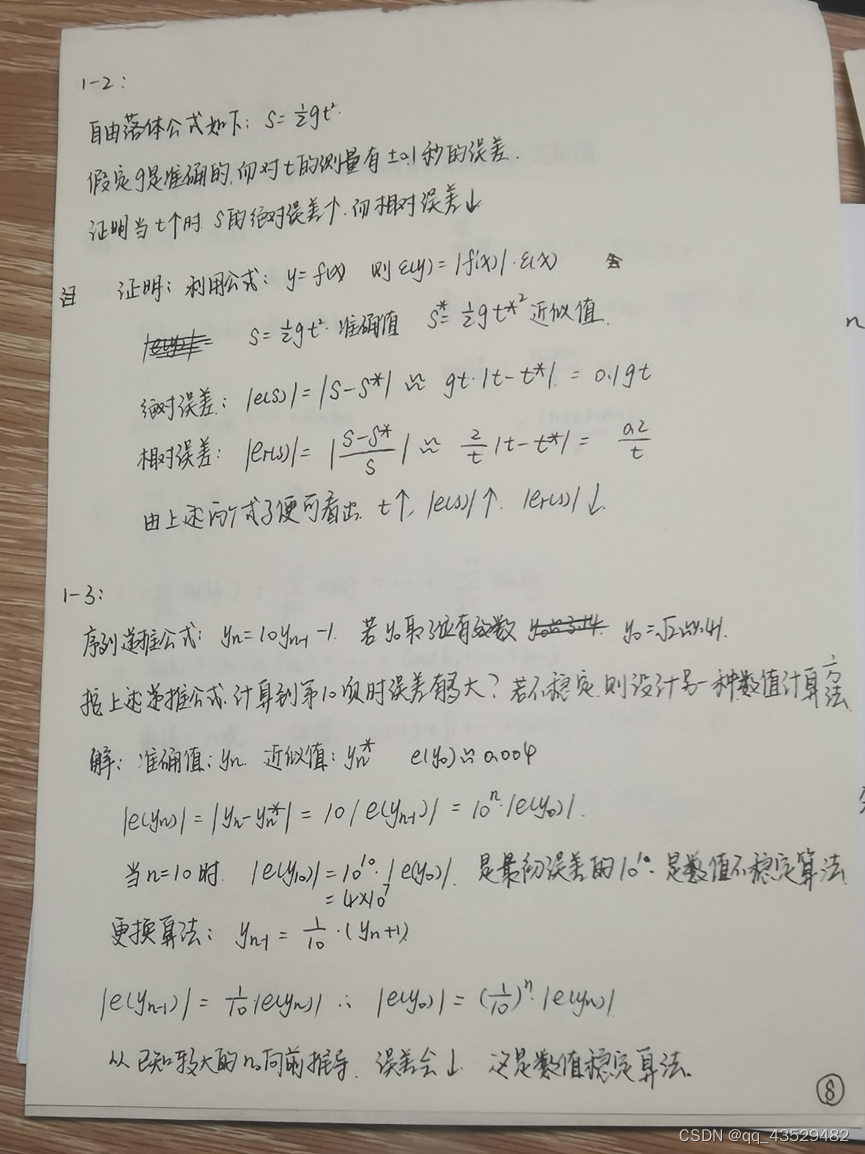 1-2:
自由落体公式如下: S=½gt².
假定g是准确的,而对t的测量有±0.1秒的误差.
证明当t↑时 S的绝对误差↑.而相对误差↓
证明: 利用公式: y=f(x) 则 ε(y)=|f'(x)|·ε(x)
S=½gt² 准确值 S*=½gt*² 近似值.
绝对误差: |e(s)|=|S-S*| ≈ gt·|t-t*|=0.1gt
相对误差: |er(s)|=|(S-S*)/S| ≈ 2/t |t-t*|= 0.2/t
由上述两个式子便可看出. t↑, |e(s)|↑. |er(s)|↓.
1-3:
序列递推公式: yn=10yn-1-1. 若y0取3位有效数 y0=√2≈1.41.
按上述递推公式.计算到第10项时误差有多大?若不稳定.则设计另一种数值计算方法.
解: 准确值: yn. 近似值: yn* e(y0)≈0.004
|e(yn)|=|yn-yn*|=10|e(yn-1)|=10ⁿ·|e(y0)|.
当n=10时. |e(y10)|=10¹⁰·|e(y0)|. 是最初误差的10¹⁰. 是数值不稳定算法.
=4×10⁷
更换算法: yn-1=1/10·(yn+1)
|e(yn-1)|=1/10·|e(yn)| ∴ |e(y0)|=(1/10)ⁿ·|e(yn)|
从已知较大的n向前推导. 误差会↓ 这是数值稳定算法.
⑧
CSDN @qq_43529482